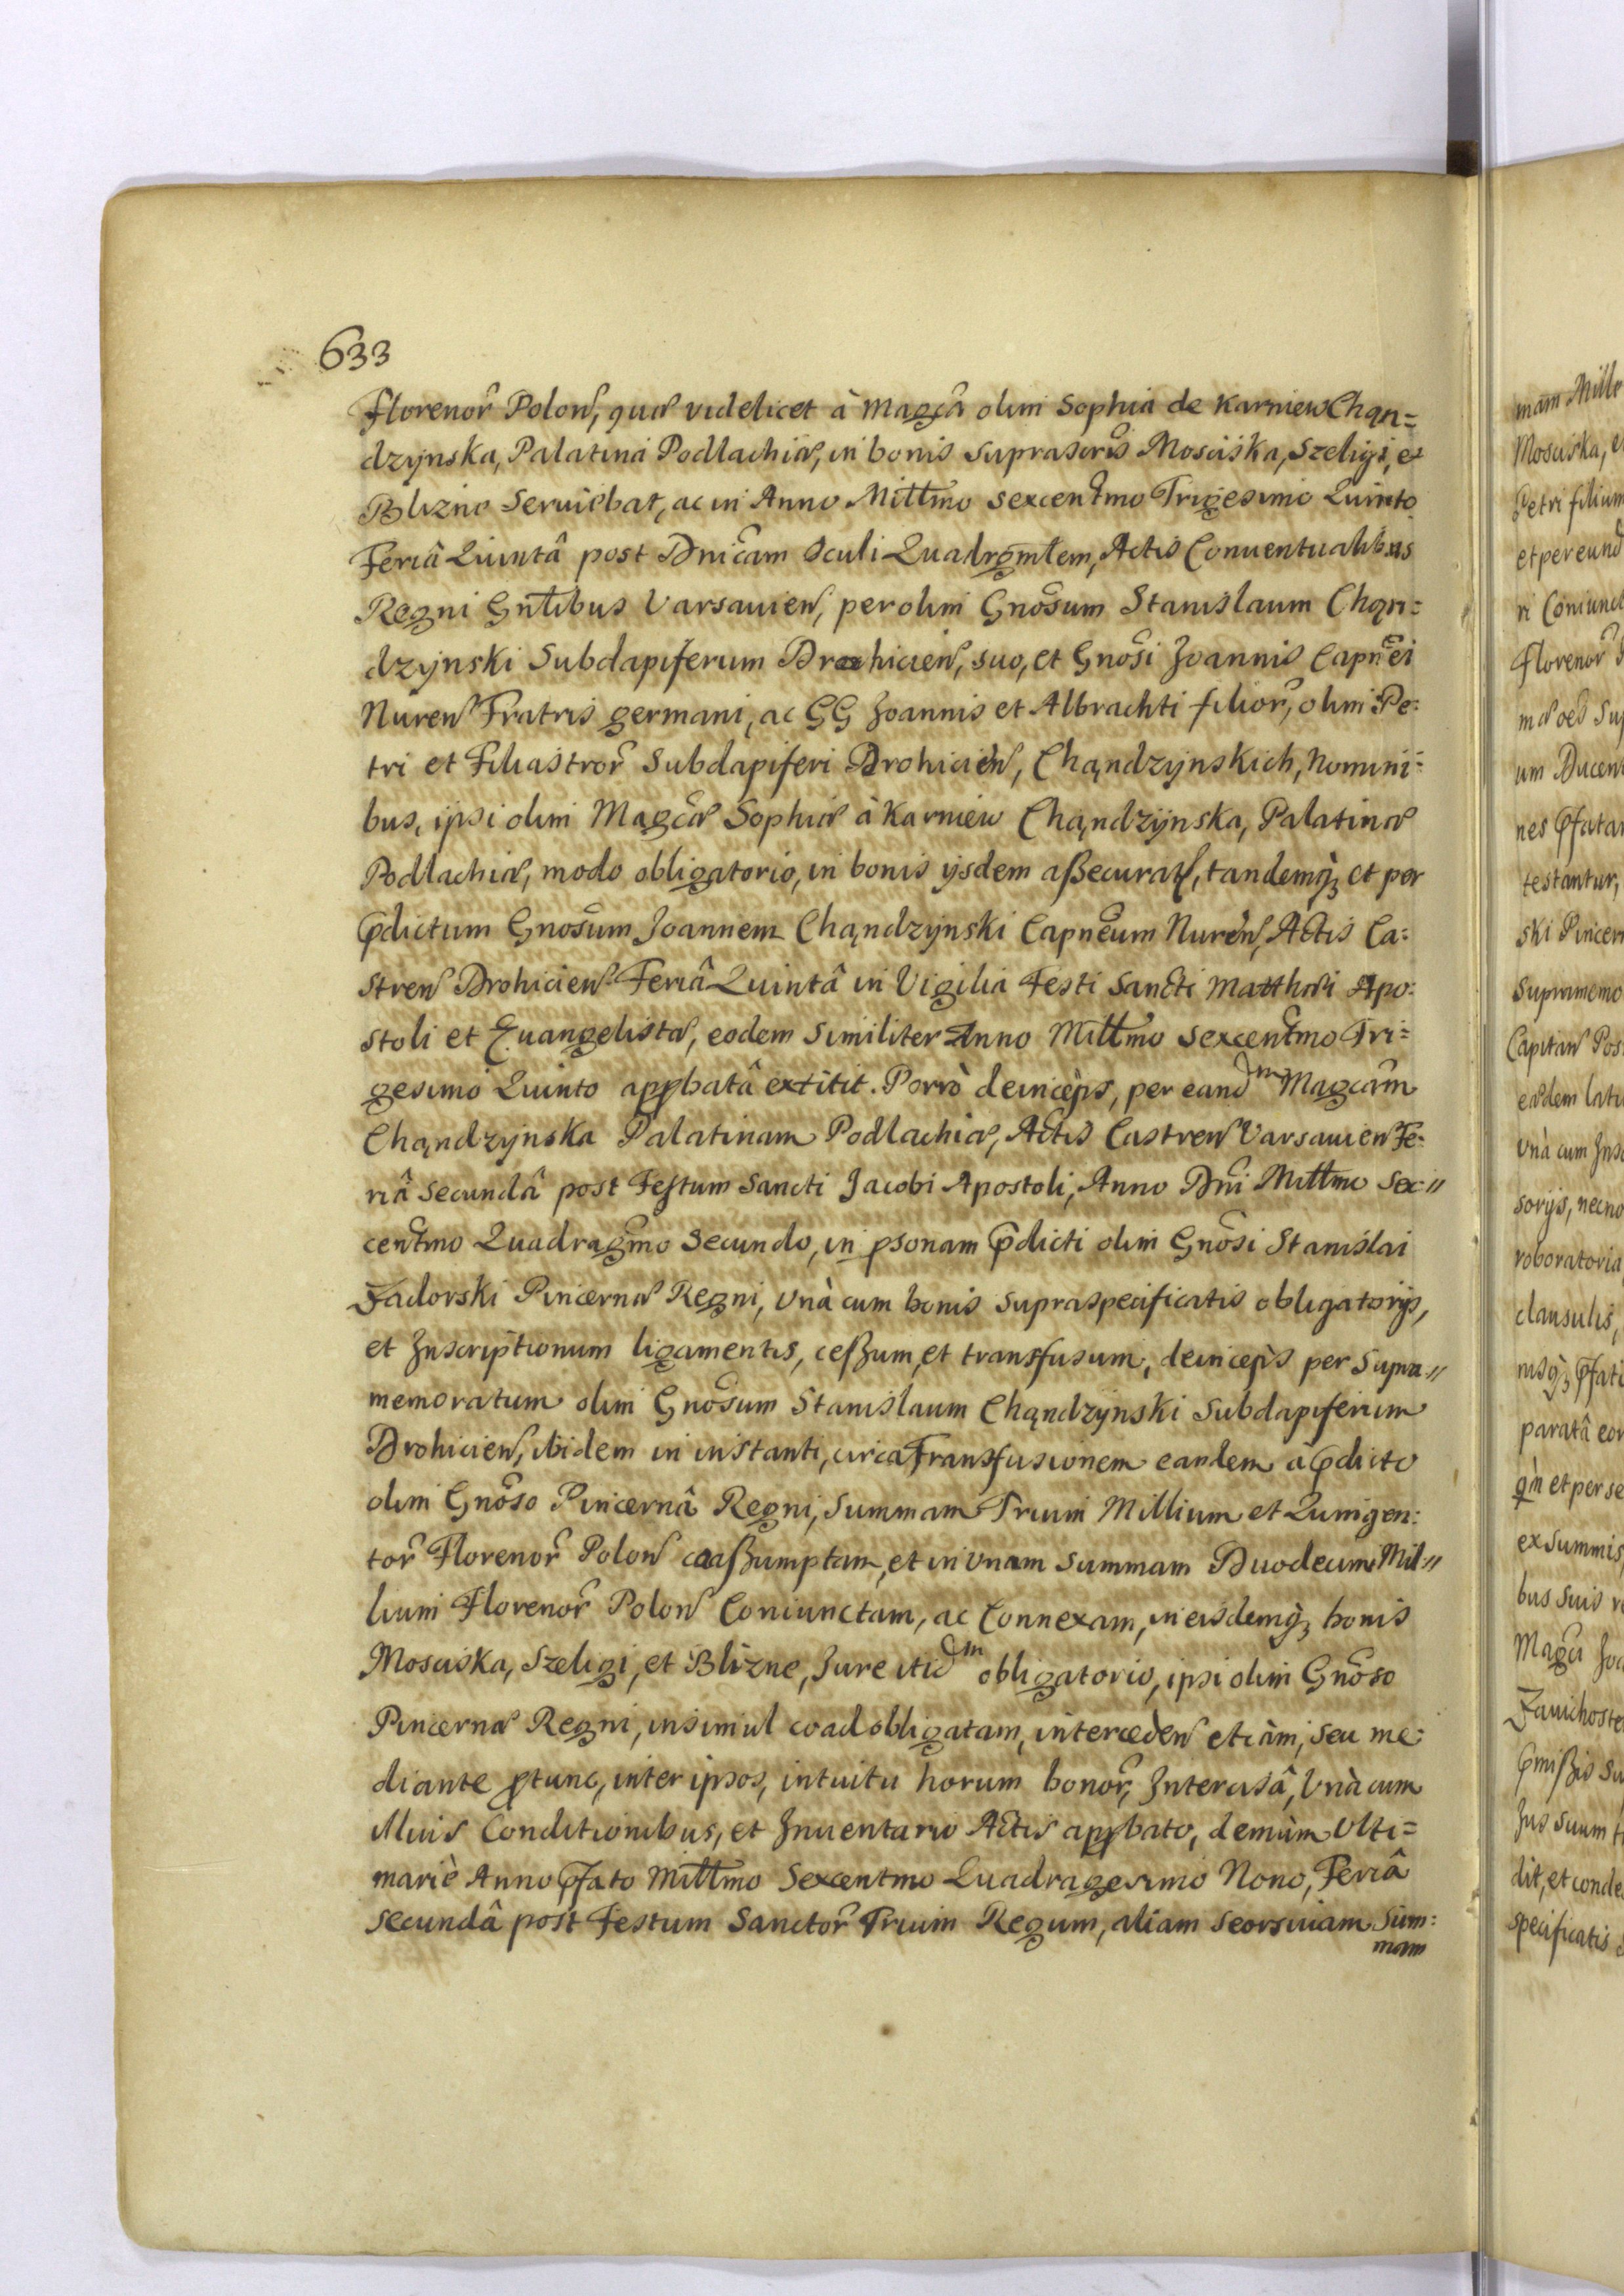 633
Florenor Polon, quæ videlicet à Magcâ olim Sophia de Karniew Chąn=
dzynska, Palatina Podlachiæ, in bonis suprascris Mosciska, Szeligi, et
Blizne Seruiebat, ac in Anno Mittmo sexcentmo Trigesimo Quinto
Feriâ Quintâ post Dnicam Oculi Quadrgmlem, Actis Conuentualibus
Regni Gnlibus Varsauien, per olim Gnosum Stanislaum Chąn=
dzynski Subdapiferum Drohicien, suo, et Gnosi Joannis Capnei
Nuren Fratris germani, ac GG Joannis et Albrachti filior, olim Pe=
tri et Filiastror Subdapiferi Drohicien, Chąndzynskich, Nomini=
bus, ipsi olim Magcæ Sophiæ à Karniew Chąndzynska, Palatinæ
Podlachiæ, modo obligatorio, in bonis ijsdem aßecurat, tandemq; et per
pdictum Gnosum Joannem Chąndzynski Capneum Nuren, Actis Ca=
stren Drohicien Feriâ Quintâ in Vigilia Festi Sancti Matthæi Apo=
stoli et Euangelistæ, eodem similiter Anno Mittmo sexcentmo Tri=
gesimo Quinto appbatâ extitit. Porrò deinceps, per eandm Magcam
Chąndzynska Palatinam Podlachiæ, Actis Castren Varsauien Fe=
riâ Secundâ post Festum Sancti Jacobi Apostoli, Anno Dni Mittmo Sex=
centmo Quadragmo Secundo, in psonam pdicti olim Gnosi Stanislai
Zadorski Pincernæ Regni, Vnà cum bonis supraspecificatis obligatorijs,
et Inscriptionum ligamentis, ceßum, et transfusum, deinceps per supra=
memoratum olim Gnosum Stanislaum Chąndzynski Subdapiferum
Drohicien, ibidem in instanti, circa Transfusionem eandem à pdicto
olim Gnoso Pincernâ Regni, Summam Trium Millium et Quingen=
tor Florenor Polon coaßumptam, et in Vnam summam Duodecim Mil=
lium Florenor Polon Coniunctam, ac Connexam, in eisdemq; bonis
Mosciska, Szeligi, et Blizne, Jure itidm obligatorio, ipsi olim Gnoso
Pincernæ Regni, insimul coadobligatam, interceden etiàm, seu me=
diante ptunc, inter ipsos, intuitu horum bonor, Intercisâ, Vnà cum
illius Conditionibus, et Inuentario Actis appbato, demùm Vlti=
mariè Anno pfato Mittmo Sexcentmo Quadragesimo Nono, Feriâ
secundâ post Festum Sanctor Trium Regum, aliam seorsiuam Sum=
mam
mam Mille
Mosciska, e
Petri filium
et per eund
ri Coniunct
Florenor
um Ducen
nes pfata
testantur,
ski Pincern
Supramemo
Capitan Pos
eædem latu
Vnà cum Ins
sorijs, necno
roboratoria
clausulis,
nisq; pfati
paratâ
et per se
ex Summis
bus suis
Zauichoste
pmißis Su
Jus suum
dit, et conde
specificatis